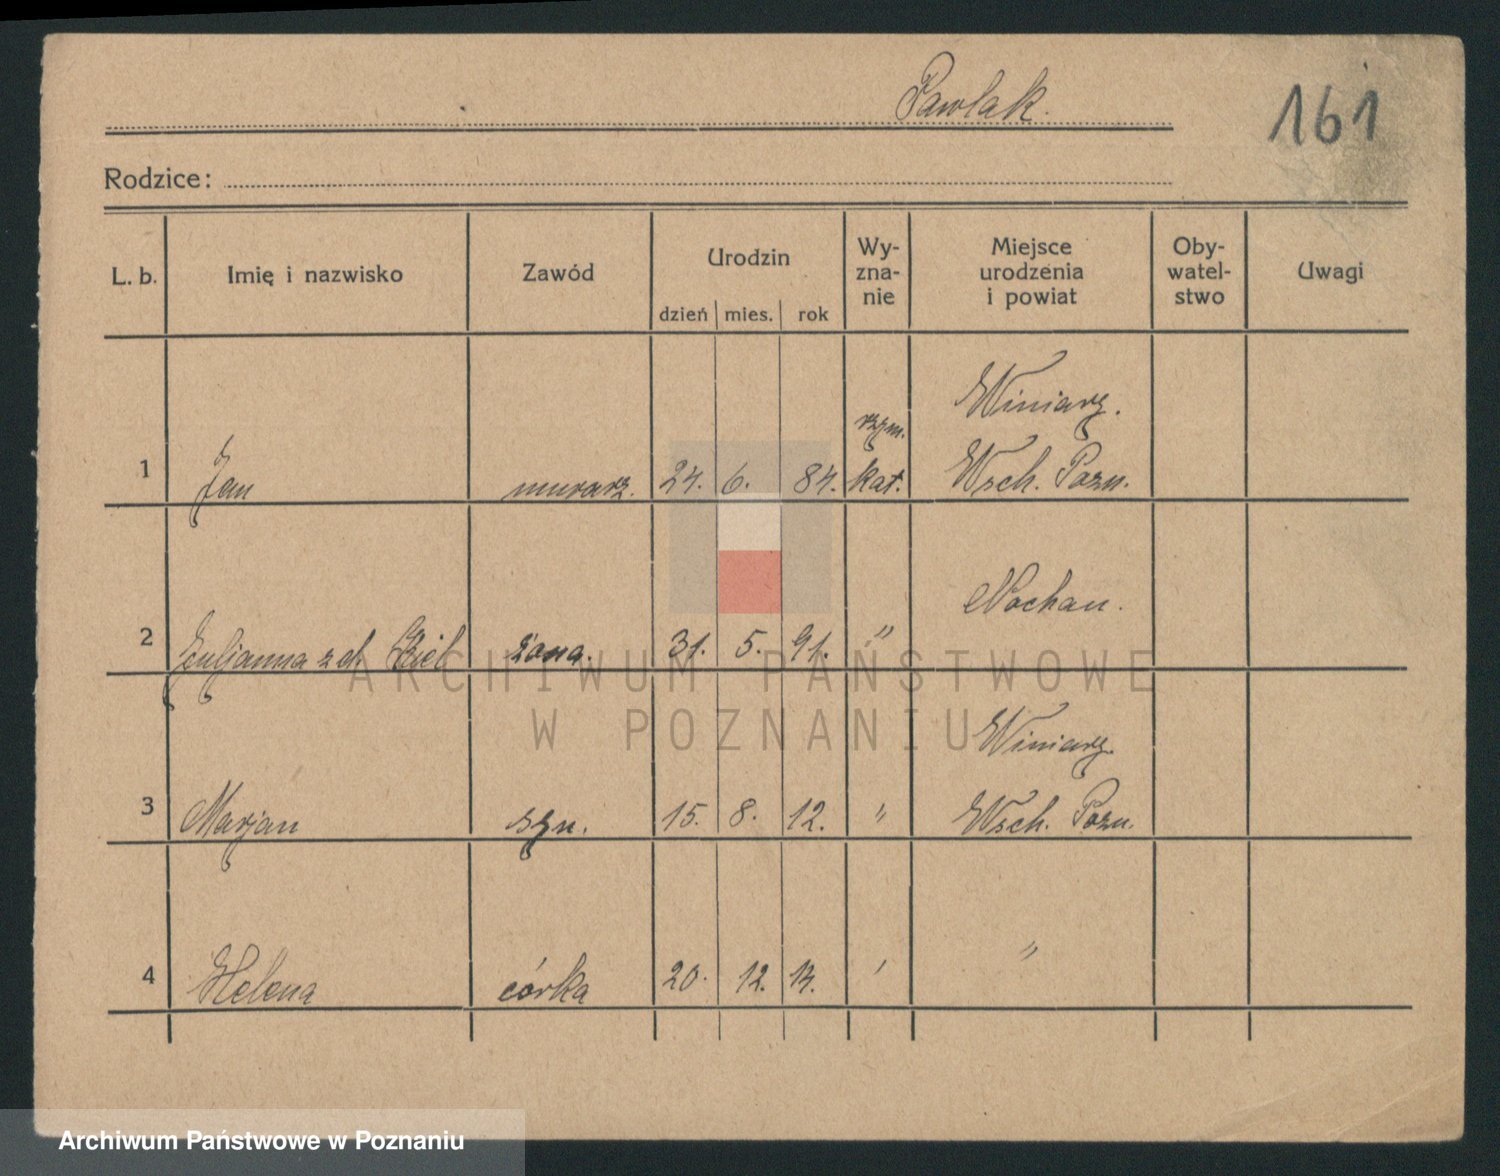 Pawlak.
161
Rodzice:
L. b. Imię i nazwisko Zawód Urodzin Wy-zna-nie Miejsce urodzenia i powiat Oby-watel-stwo Uwagi
dzień mies. rok
Winiarz.
rzym.
1 Jan murarz. 24. 6. 84. kat. Wsch. Pozn.
Nochan.
2 Juljanna z d. żona. 31. 5. 91. "
ARCHIWUM PAŃSTWOWE
W POZNANIU
Winiarz.
3 Marjan syn. 15. 8. 12. " Wsch. Pozn.
4 Helena córka 20. 12. " "
Archiwum Państwowe w Poznaniu